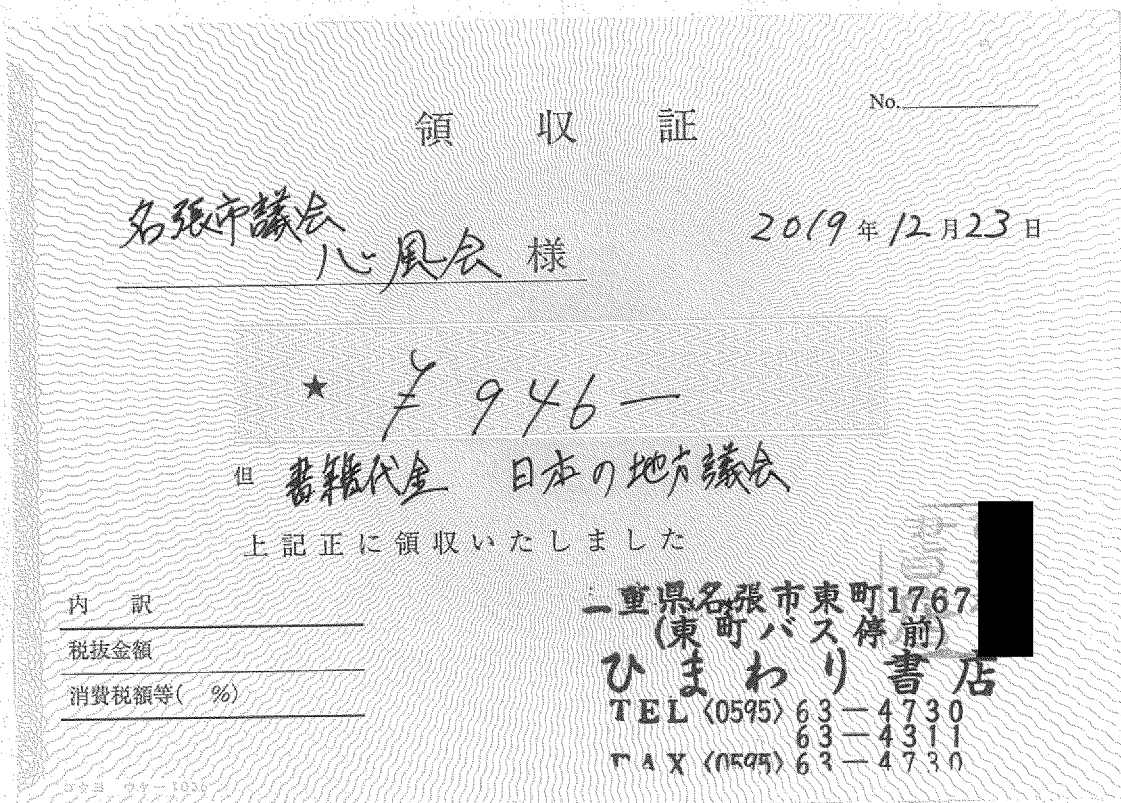 No.
領収証
名張市議会
心風会 様
2019年12月23日
★ ¥946—
但 書籍代金 日本の地方議会
上記正に領収いたしました
内訳
税抜金額
消費税額等( %)
三重県名張市東町1767
(東町バス停前)
ひまわり書店
TEL〈0595〉63－4730
63－4311
FAX〈0595〉63－4730